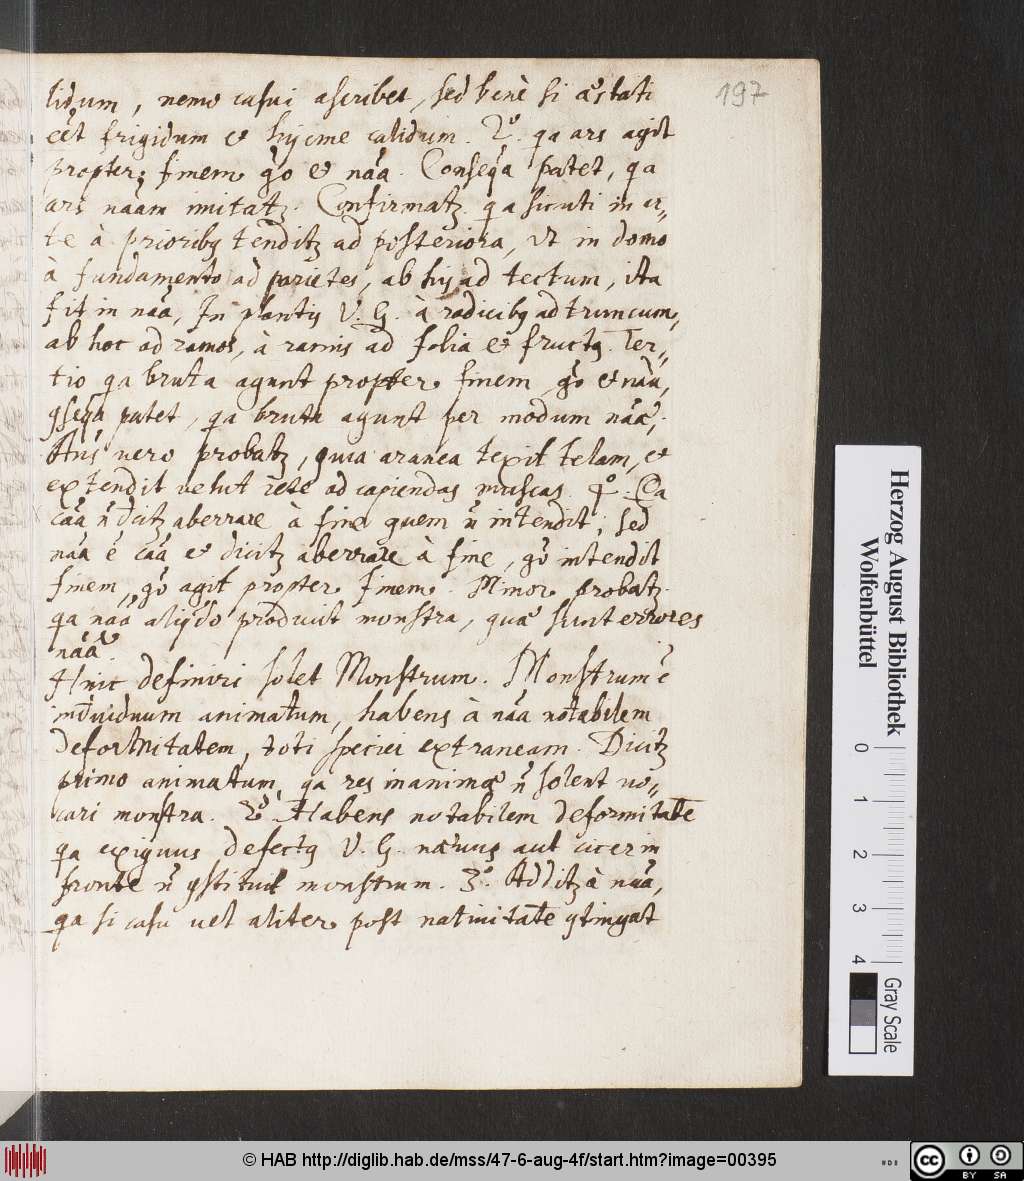 197
lidum, nemo casui ascribet, sed benè si æstati
eet frigidum et hijeme calidum. 2º. qa ars agit
propter finem gº et nãa. Conseqa patet, qa
ars naam imitatz. Confirmatz qa sicuti in ar„
te à prioribq tenditz ad posteriora, ut in domo
à fundamento ad parietes, ab hij ad tectum, ita
fit in nãa, In plantis V. G. à radicibq ad truncum,
ab hoc ad ramos, à ramis ad folia et fructq. Ter„
tio qa bruta agunt propter finem, gº et nãa,
qseqa patet, qa bruta agunt per modum nãæ,
Ans vero probatz, quia aranea texit telam, et
extendit velut rete ad capiendas muscas. 4º. Ea
cãa ñ dcitz aberrare à fine quem ñ intendit, sed
nãa ẽ cãa et dicitz aberrare à fine, gº intendit
finem, gº agit propter finem. Minor probatz
qa nãa aliqdo producit monstra, quæ sunt errores
nãæ.
Hinc definiri solet Monstrum. Monstrum ẽ
individuum animatum, habens à nãa notabilem
deformitatem, toti speciei extraneam. Dicitz
primo animatum, qa res inanimæ ñ solent vo„
cari monstra. 2º. Habens notabilem deformitatẽ
qa exiguus defectq V. G. nævus aut cicer in
fronte ñ qstituit monstrum. 3º. Additz à nãa,
qa si casu vel aliter post nativitatẽ qtingat
Herzog August Bibliothek
Wolfenbüttel
0 1 2 3 4
Gray Scale
© HAB http://diglib.hab.de/mss/47-6-aug-4f/start.htm?image=00395
cc BY SA